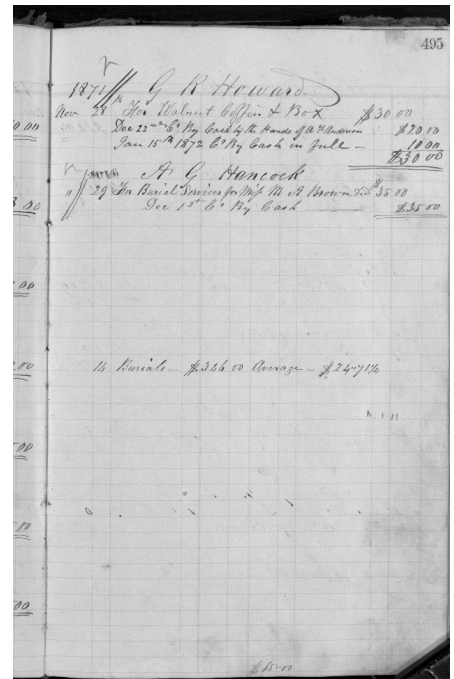 495
1871 G R Howard
Nov 28th For Walnut Coffin & Box $30 00
Dec 22nd Cr By Cash by the Hands of A Anderson $20.00
Jan 15th 1872 Cr By Cash in full - 10 00
$30 00
A G Hancock
" 29 For Burial Services for Miss M A Brown $35 00
Dec 1st Cr By Cash $35 00
14 Burials - $346 00 Average - $24.71¼
$65.00